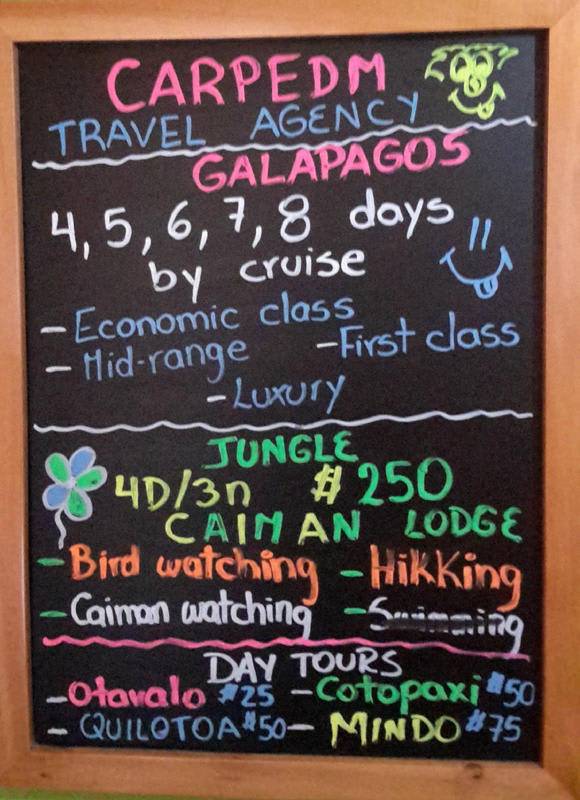 CARPEDM
TRAVEL AGENCY
GALAPAGOS
4, 5, 6, 7, 8 days
by cruise
- Economic class
- Mid-range - First class
- Luxury
JUNGLE
4D/3n $250
CAIMAN LODGE
- Bird watching - HikKing
- Caiman watching - Swimming
DAY TOURS
- Otavalo $25 - Cotopaxi $50
- QUILOTOA $50 - MINDO $75